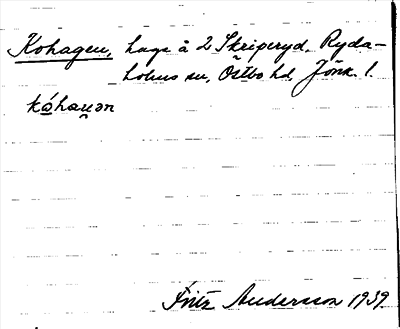 Kohagen, hage å 2 Skriperyd, Ryda-
holms sn, Östbo hd, Jönk. l.
kóhau̯ən
Fritz Andersson 1939.